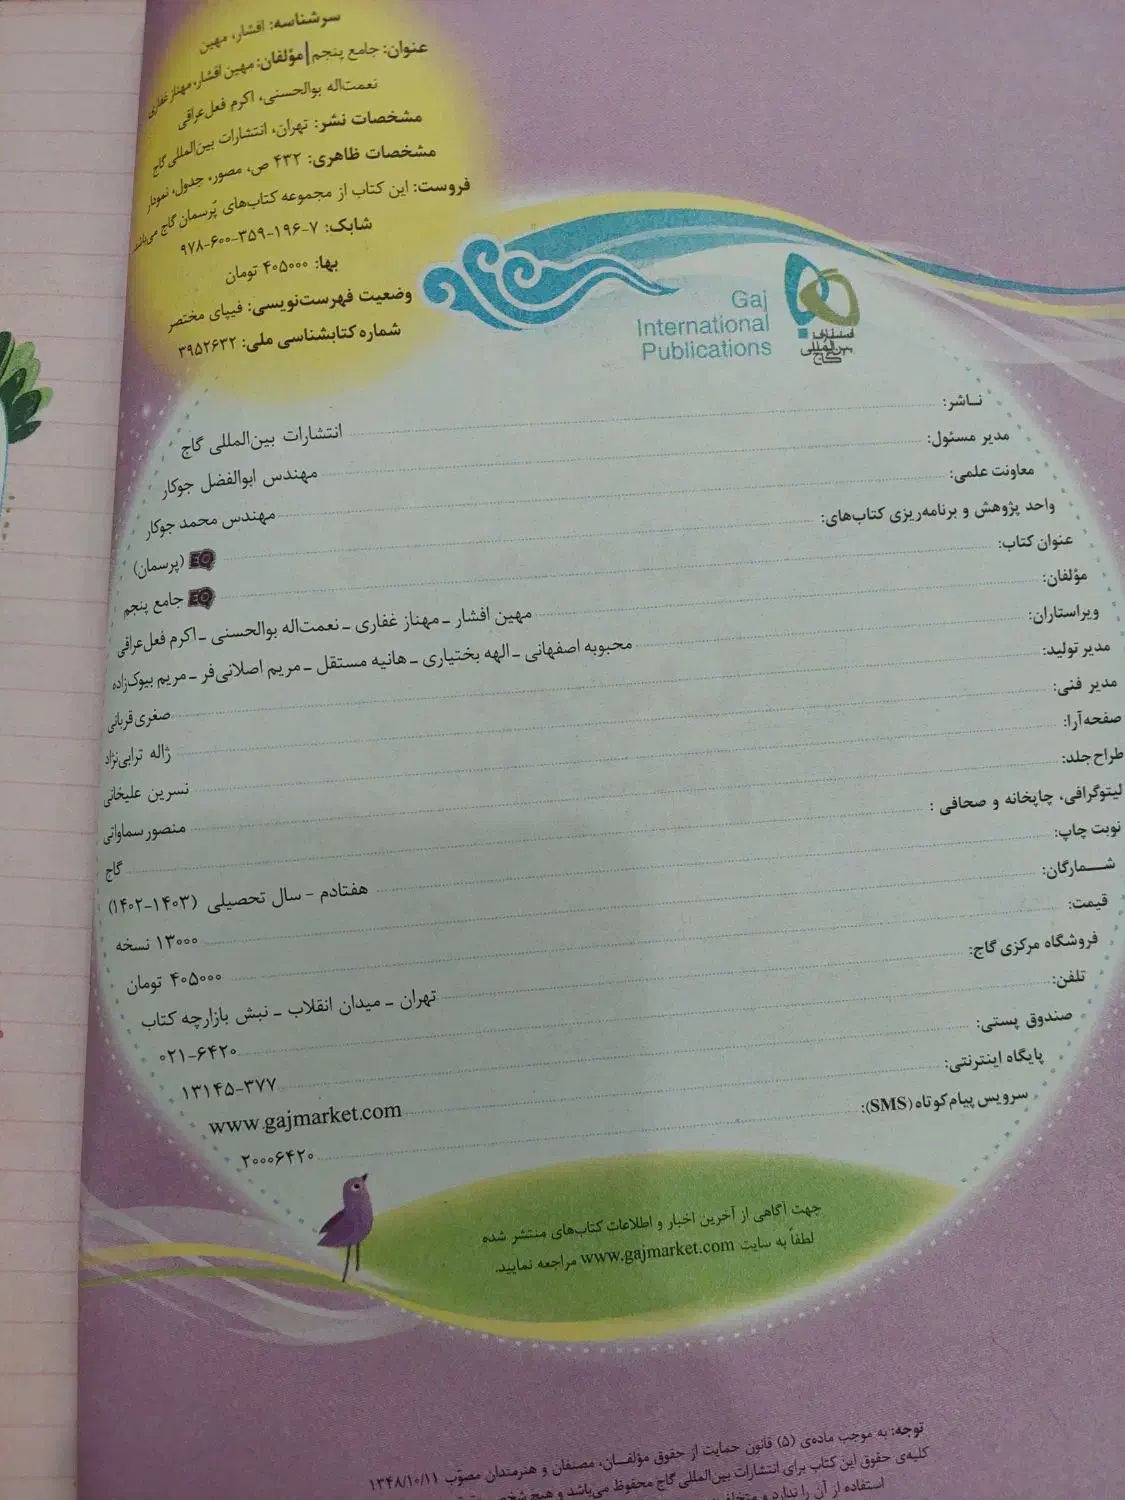 سرشناسه: افشار، مهین
عنوان: جامع پنجم | مؤلفان: مهین افشار، مهناز غفاری
نعمت‌اله بوالحسنی، اکرم فعل‌عراقی
مشخصات نشر: تهران، انتشارات بین‌المللی گاج
مشخصات ظاهری: ۴۳۲ ص، مصور، جدول، نمودار
فروست: این کتاب از مجموعه کتاب‌های پُرسمان گاج می‌باشد
شابک: ۷-۱۹۶-۳۵۹-۶۰۰-۹۷۸
بها: ۴۰۵۰۰۰ تومان
وضعیت فهرست‌نویسی: فیپای مختصر
شماره کتابشناسی ملی: ۳۹۵۲۶۳۲
Gaj
International
Publications
انتشارات
بین‌المللی
گاج
ناشر: انتشارات بین‌المللی گاج
مدیر مسئول: مهندس ابوالفضل جوکار
معاونت علمی: مهندس محمد جوکار
واحد پژوهش و برنامه‌ریزی کتاب‌های: EQ (پرسمان)
عنوان کتاب: EQ جامع پنجم
مؤلفان: مهین افشار ـ مهناز غفاری ـ نعمت‌اله بوالحسنی ـ اکرم فعل‌عراقی
ویراستاران: محبوبه اصفهانی ـ الهه بختیاری ـ هانیه مستقل ـ مریم اصلانی‌فر ـ مریم بیوک‌زاده
مدیر تولید: صغری قربانی
مدیر فنی: ژاله ترابی‌نژاد
صفحه‌آرا: نسرین علیخانی
طراح جلد: منصور سماواتی
لیتوگرافی، چاپخانه و صحافی : گاج
نوبت چاپ: هفتادم - سال تحصیلی (۱۴۰۳-۱۴۰۲)
شمارگان: ۱۳۰۰۰ نسخه
قیمت: ۴۰۵۰۰۰ تومان
فروشگاه مرکزی گاج: تهران ـ میدان انقلاب ـ نبش بازارچه کتاب
تلفن: ۰۲۱-۶۴۲۰
صندوق پستی: ۱۳۱۴۵-۳۷۷
پایگاه اینترنتی: www.gajmarket.com
سرویس پیام‌کوتاه (SMS): ۲۰۰۰۶۴۲۰
جهت آگاهی از آخرین اخبار و اطلاعات کتاب‌های منتشر شده
لطفاً به سایت www.gajmarket.com مراجعه نمایید.
توجه: به موجب ماده‌ی (۵) قانون حمایت از حقوق مؤلفان، مصنفان و هنرمندان مصوّب ۱۳۴۸/۱۰/۱۱
کلیه‌ی حقوق این کتاب برای انتشارات بین‌المللی گاج محفوظ می‌باشد و هیچ شخص
استفاده از آن را ندارد و